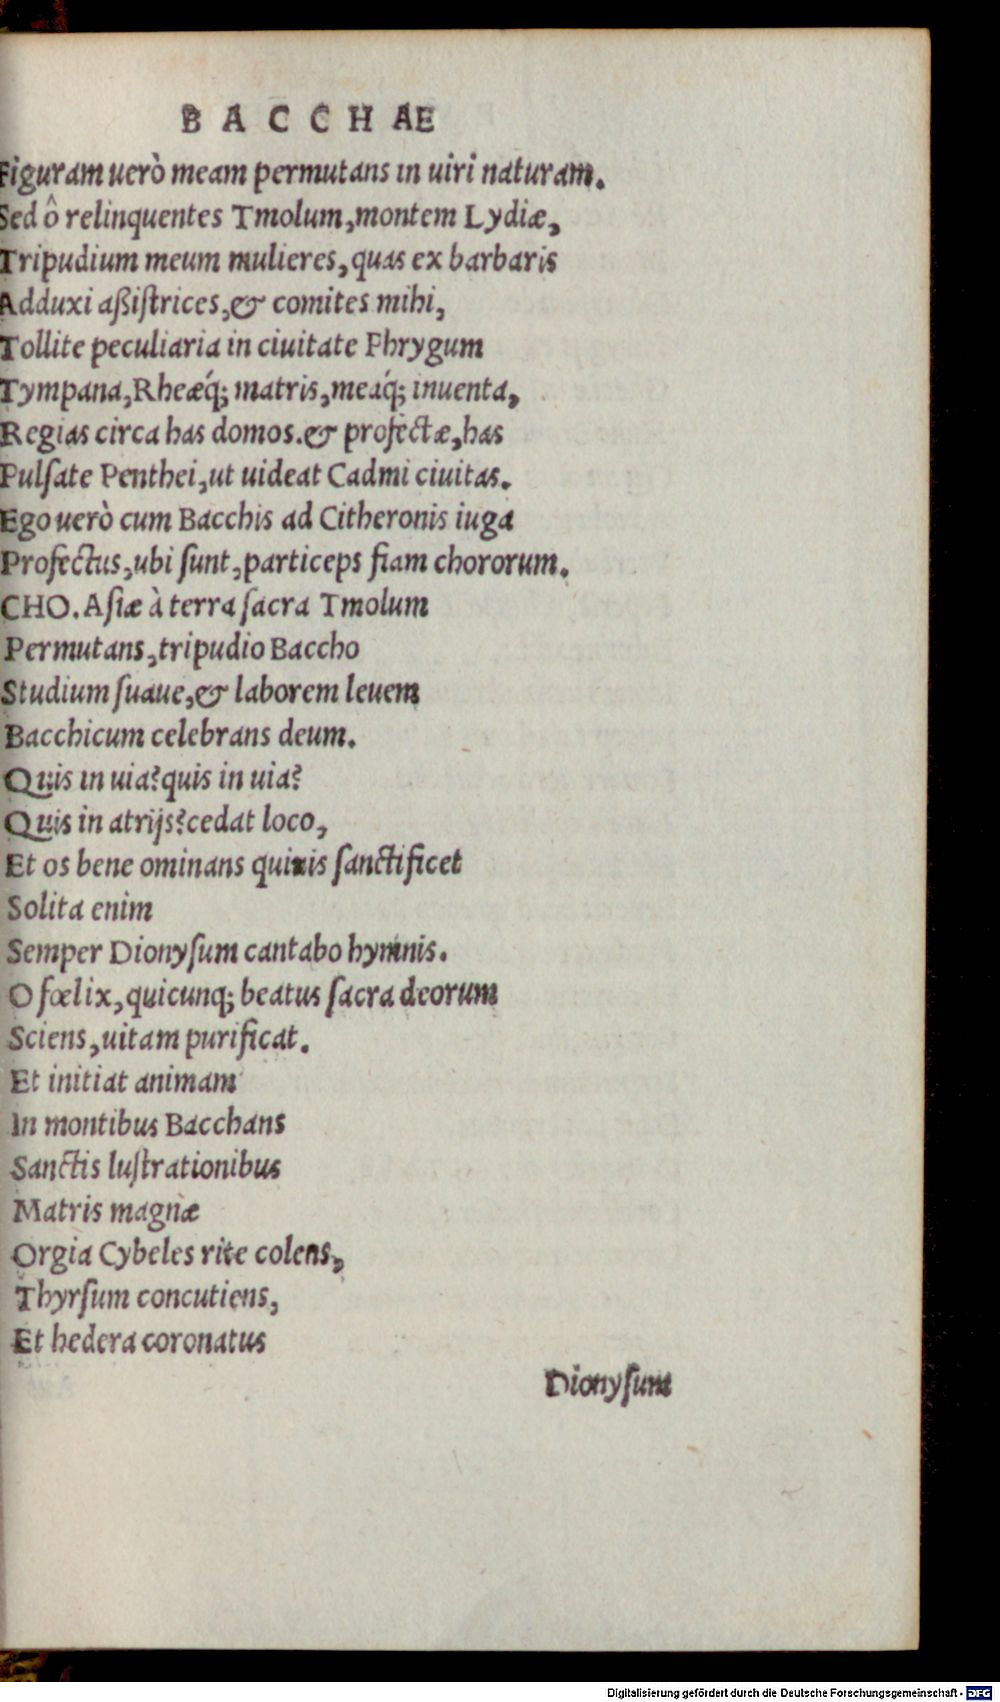 BACCHAE
Figuram uerò meam permutans in uiri naturam.
Sed ô relinquentes Tmolum, montem Lydiæ,
Tripudium meum mulieres, quas ex barbaris
Adduxi aßiſtrices, & comites mihi,
Tollite peculiaria in ciuitate Phrygum
Tympana, Rheæq́; matris, meaq́; inuenta,
Regias circa has domos. & profectæ, has
Pulſate Penthei, ut uideat Cadmi ciuitas.
Ego uerò cum Bacchis ad Citheronis iuga
Profectus, ubi ſunt, particeps fiam chororum.
CHO. Aſiæ à terra ſacra Tmolum
Permutans, tripudio Baccho
Studium ſuaue, & laborem leuem
Bacchicum celebrans deum.
Quis in uia? quis in uia?
Quis in atrijs? cedat loco,
Et os bene ominans quiuis ſanctificet
Solita enim
Semper Dionyſum cantabo hymnis.
O fœlix, quicunq; beatus ſacra deorum
Sciens, uitam purificat.
Et initiat animam
In montibus Bacchans
Sanctis luſtrationibus
Matris magnæ
Orgia Cybeles rite colens,
Thyrſum concutiens,
Et hedera coronatus
Dionyſum
Digitalisierung gefördert durch die Deutsche Forschungsgemeinschaft - DFG